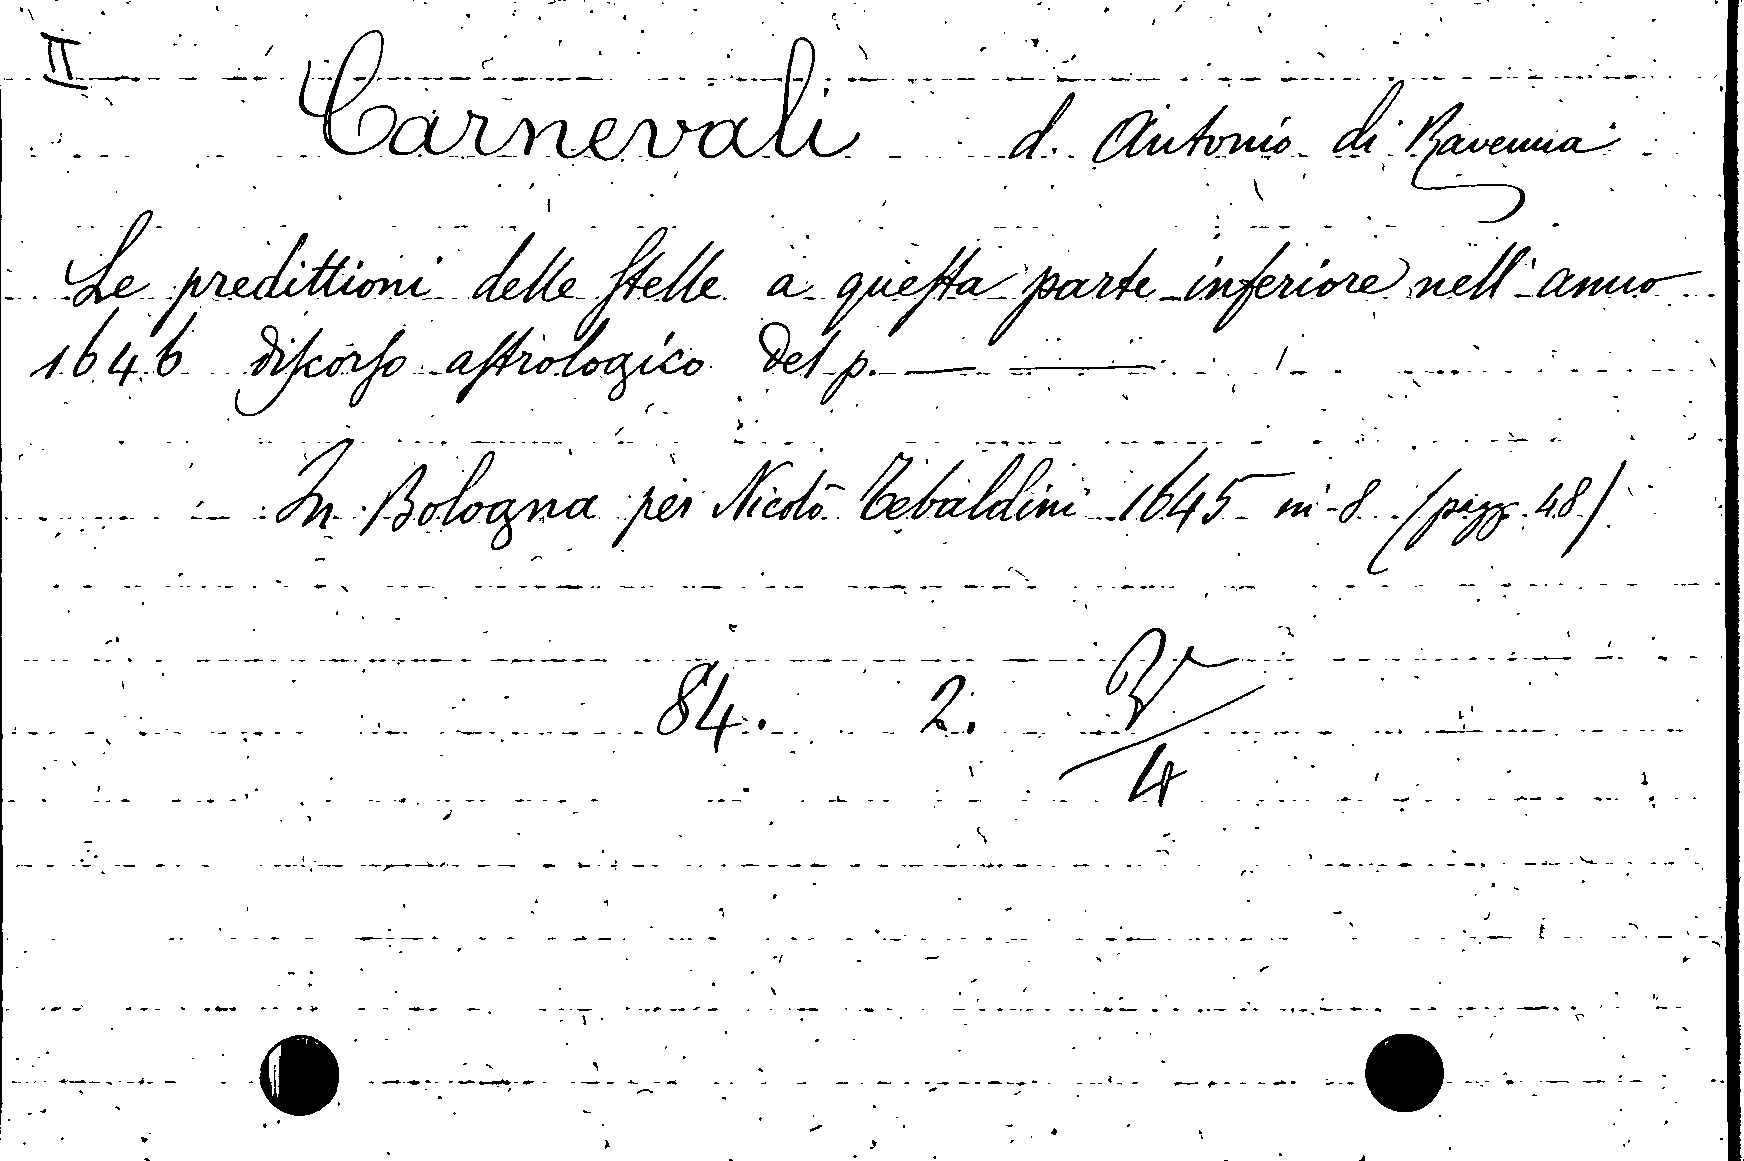 II
Carnevali d. Antonio di Ravenna
Le predittioni delle ſtelle a queſta parte inferiore nell' anno
1646 diſcorſo aſtrologico del p. — —
In Bologna per Nicolò Tebaldini 1645 in 8 (pagg. 48)
84. 2.
4